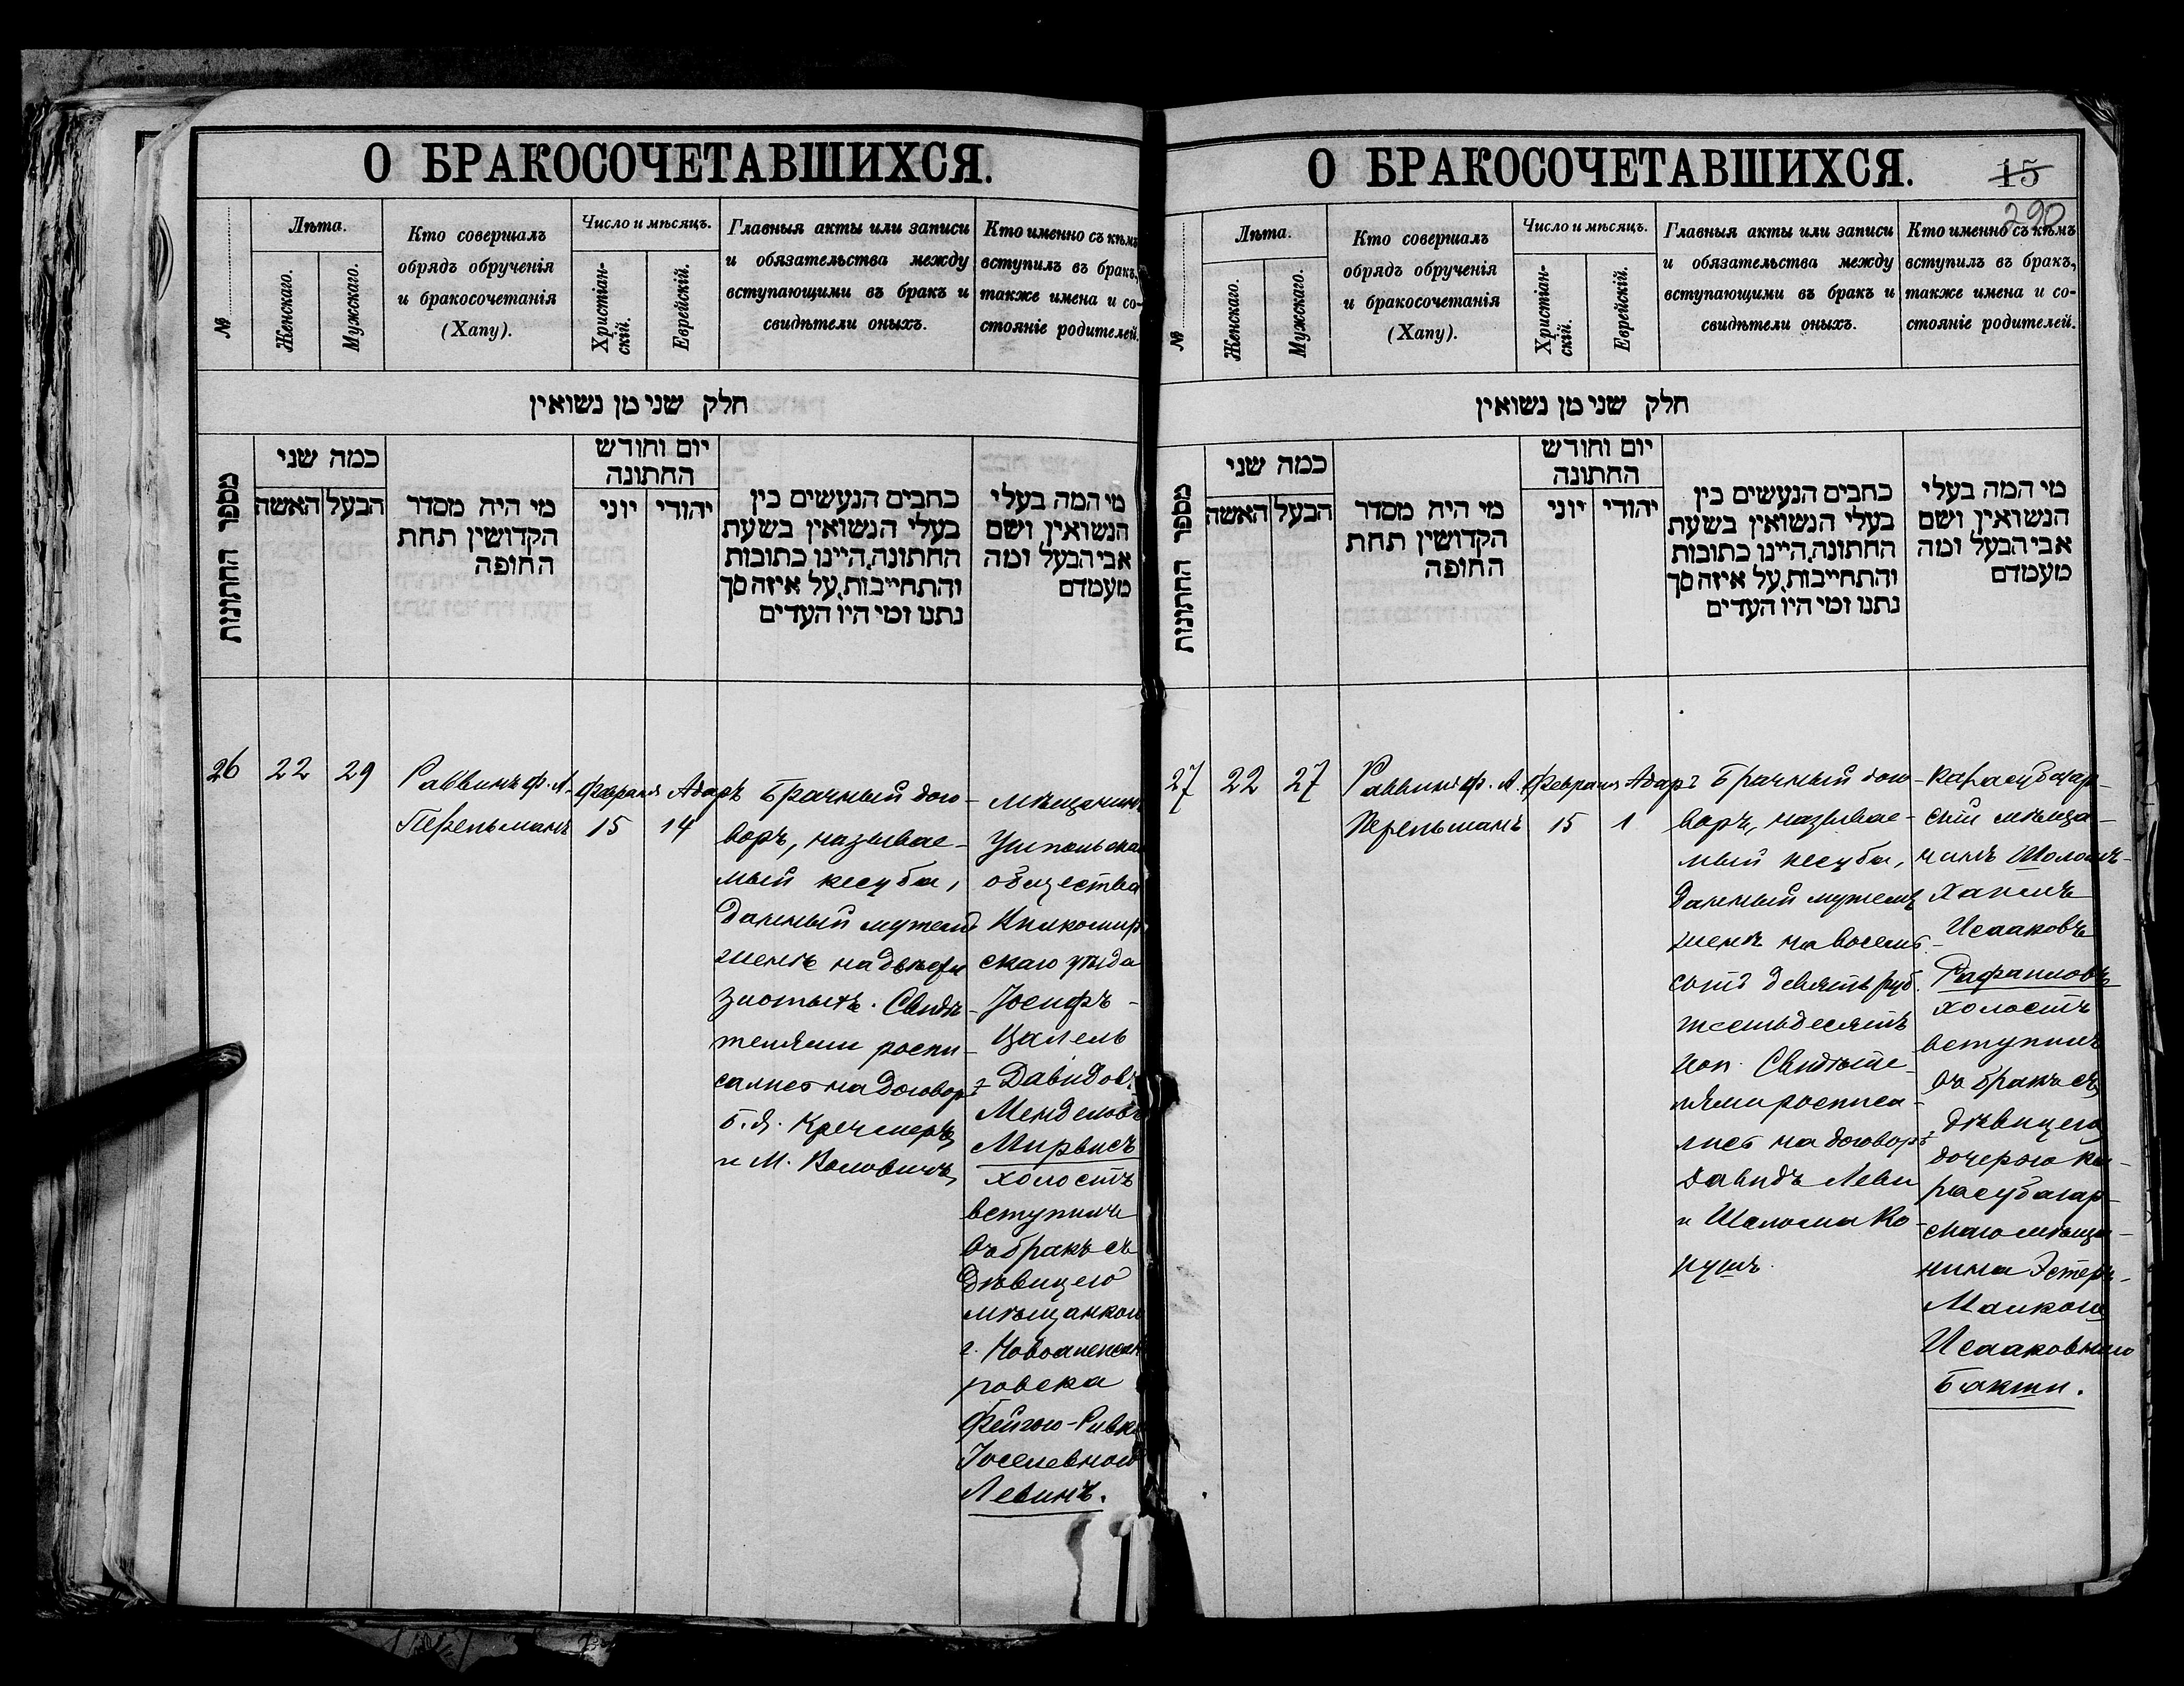 О БРАКОСОЧЕТАВШИХСЯ.
№
Лѣта.
Женскаго.
Мужскаго.
Кто совершалъ
обрядъ обрученія
и бракосочетанія
(Хапу).
Число и мѣсяцъ.
Христіан-
скій.
Еврейскій.
Главныя акты или записи
и обязательства между
вступающими въ бракъ и
свидѣтели оныхъ.
Кто именно съ кѣмъ
вступилъ въ бракъ,
также имена и со-
стояніе родителей.
חלק שני מן נשואין
מספר החתונות
כמה שני
האשה
הבעל
מי היה מסדר
הקדושין תחת
החופה
יום וחודש
החתונה
יוני
יהודי
כתבים הנעשים בין
בעלי הנשואין בשעת
החתונה, היינו כתובות
והתחייבות, על איזה סך
נתנו ומי היו העדים
מי המה בעלי
הנשואין ושם
אבי הבעל ומה
מעמדם
26
22
29
Раввинъ Ф. А.
Перельманъ
Февраля
15
Адаръ
14
Брачный дого-
воръ, называе-
мый кесуба,
данный мужемъ
женѣ на двѣсти
злотыхъ. Свидѣ-
телями роспи-
салисъ на договорѣ
Б. Я. Кречмеръ
и М. Воловичъ
Мѣщанинъ
общества
Вилкомир
скаго уѣзда
Іосифъ-
Цалель
Давидовъ
Менделовъ
Мирвисъ
холостъ
вступилъ
въ бракъ съ
дѣвицею
мѣщанкою
г. Новоалександ
ровска
Фейгою-Ривк
Іоселевною
Левинъ.
О БРАКОСОЧЕТАВШИХСЯ.
15
290
№
Лѣта.
Женскаго.
Мужскаго.
Кто совершалъ
обрядъ обрученія
и бракосочетанія
(Хапу).
Число и мѣсяцъ.
Христіан-
скій.
Еврейскій.
Главныя акты или записи
и обязательства между
вступающими въ бракъ и
свидѣтели оныхъ.
Кто именно съ кѣмъ
вступилъ въ бракъ,
также имена и со-
стояніе родителей.
חלק שני מן נשואין
מספר החתונות
כמה שני
האשה
הבעל
מי היה מסדר
הקדושין תחת
החופה
יום וחודש
החתונה
יוני
יהודי
כתבים הנעשים בין
בעלי הנשואין בשעת
החתונה, היינו כתובות
והתחייבות, על איזה סך
נתנו ומי היו העדים
מי המה בעלי
הנשואין ושם
אבי הבעל ומה
מעמדם
27
22
27
Раввинъ Ф. А.
Перельманъ
Февраля
15
Адаръ
1
Брачный дого-
воръ, называе-
мый кесуба,
данный мужемъ
женѣ на восемь-
сотъ девять руб.
шестьдесятъ
коп. Свидѣте-
лями росписа-
лисъ на договорѣ
Давидъ Леви
и Шалома Ко-
Карасубазар-
скій мѣща-
нинъ Шоломъ-
Хаимъ
Исааковъ
Рафаиловъ
холостъ
вступилъ
въ бракъ съ
дѣвицею
дочерью ка-
расубазар-
скаго мѣща-
нина Эстеръ-
Малкою
Исааковною
Бакши.